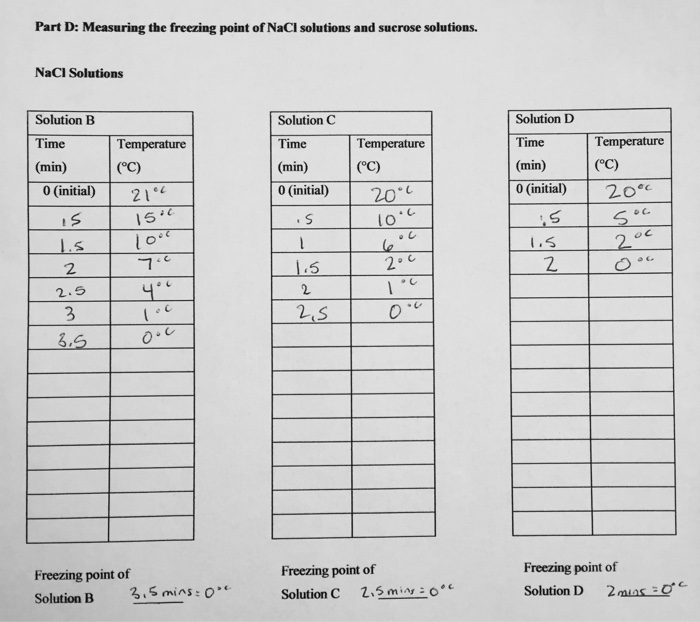 Part D: Measuring the freezing point of NaCl solutions and sucrose solutions.
NaCl Solutions
Solution B
Time (min) Temperature (°C)
0 (initial) 21°C
.5 15°C
1.5 10°C
2 7°C
2.5 4°C
3 1°C
3.5 0°C
Freezing point of
Solution B 3.5 mins = 0°C
Solution C
Time (min) Temperature (°C)
0 (initial) 20°C
.5 10°C
1 6°C
1.5 2°C
2 1°C
2.5 0°C
Freezing point of
Solution C 2.5 mins = 0°C
Solution D
Time (min) Temperature (°C)
0 (initial) 20°C
.5 5°C
1.5 2°C
2 0°C
Freezing point of
Solution D 2 mins = 0°C